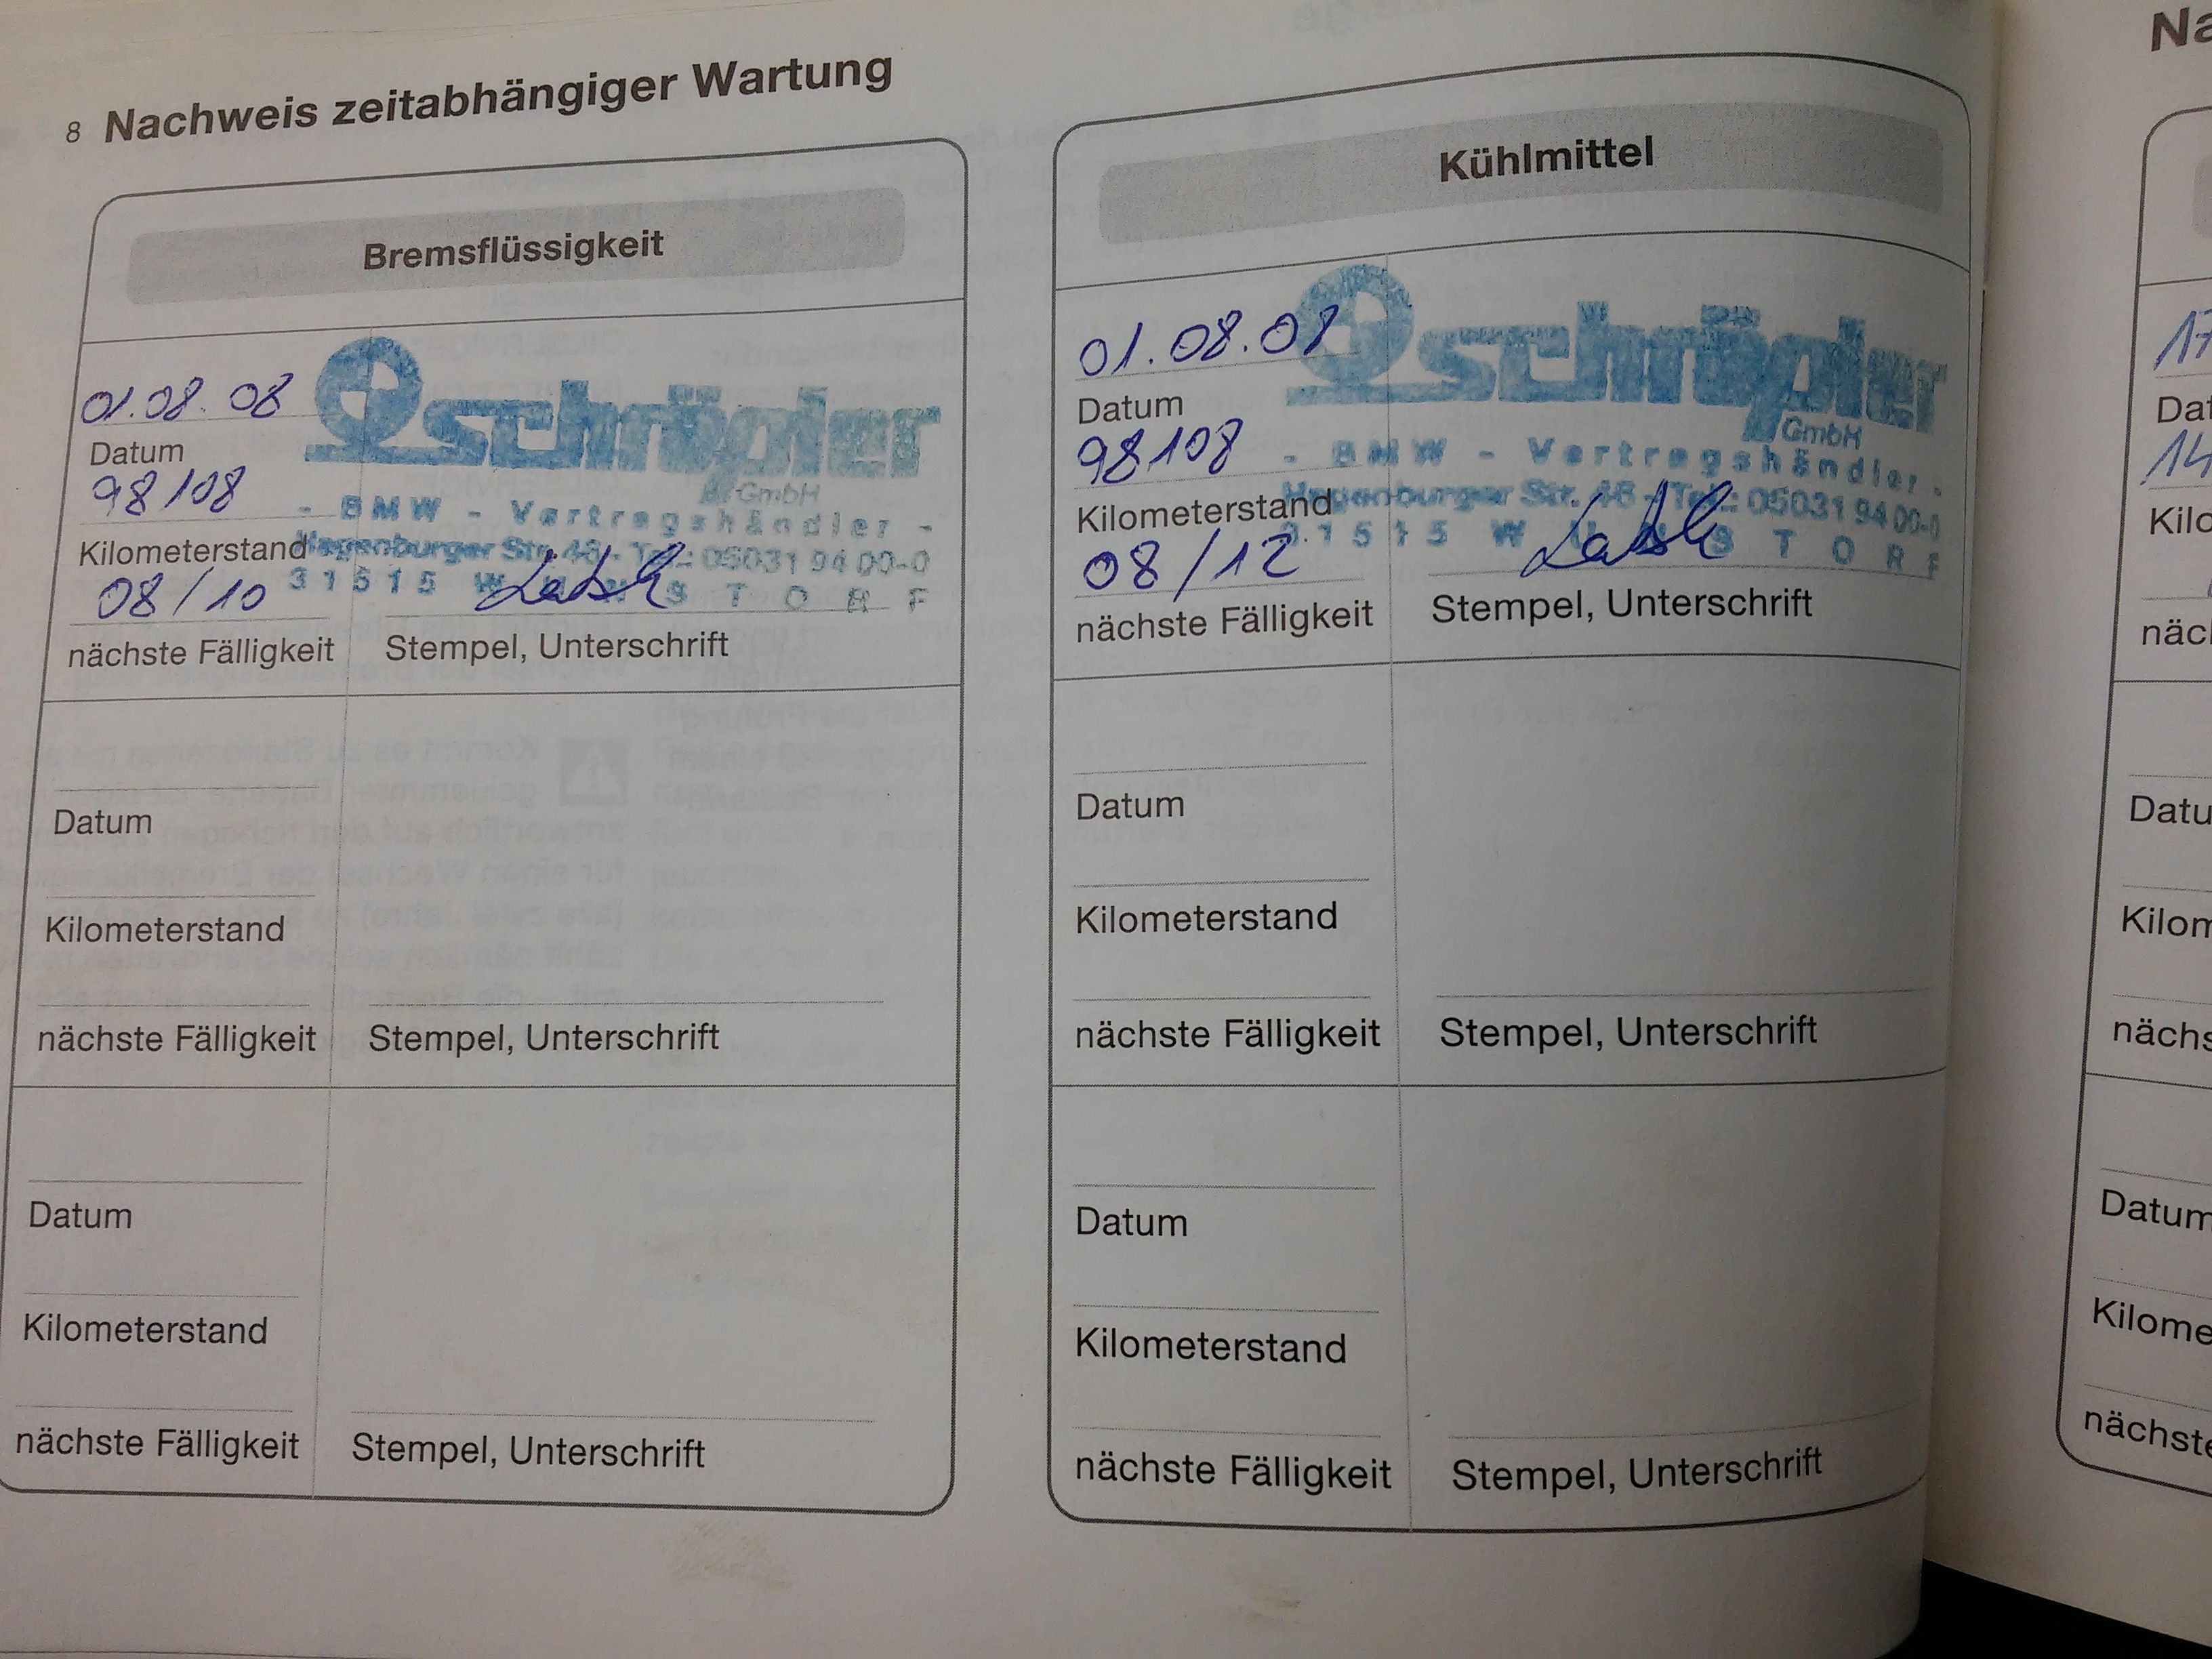 8 Nachweis zeitabhängiger Wartung
Bremsflüssigkeit
01.08.08
Datum
98108
Kilometerstand
08/10
nächste Fälligkeit
schräpler
GmbH
- BMW - Vertragshändler -
Hagenburger Str. 46 - Tel.: 05031 94 00-0
31515 WUNSTORF
Stempel, Unterschrift
Datum
Kilometerstand
nächste Fälligkeit Stempel, Unterschrift
Datum
Kilometerstand
nächste Fälligkeit Stempel, Unterschrift
Kühlmittel
01.08.08
Datum
98108
Kilometerstand
08/12
nächste Fälligkeit
schräpler
GmbH
- BMW - Vertragshändler -
Hagenburger Str. 46 - Tel.: 05031 94 00-0
31515 WUNSTORF
Stempel, Unterschrift
Datum
Kilometerstand
nächste Fälligkeit Stempel, Unterschrift
Datum
Kilometerstand
nächste Fälligkeit Stempel, Unterschrift
Na
17
Dat
14
Kilo
näch
Datu
Kilom
nächs
Datum
Kilome
nächste